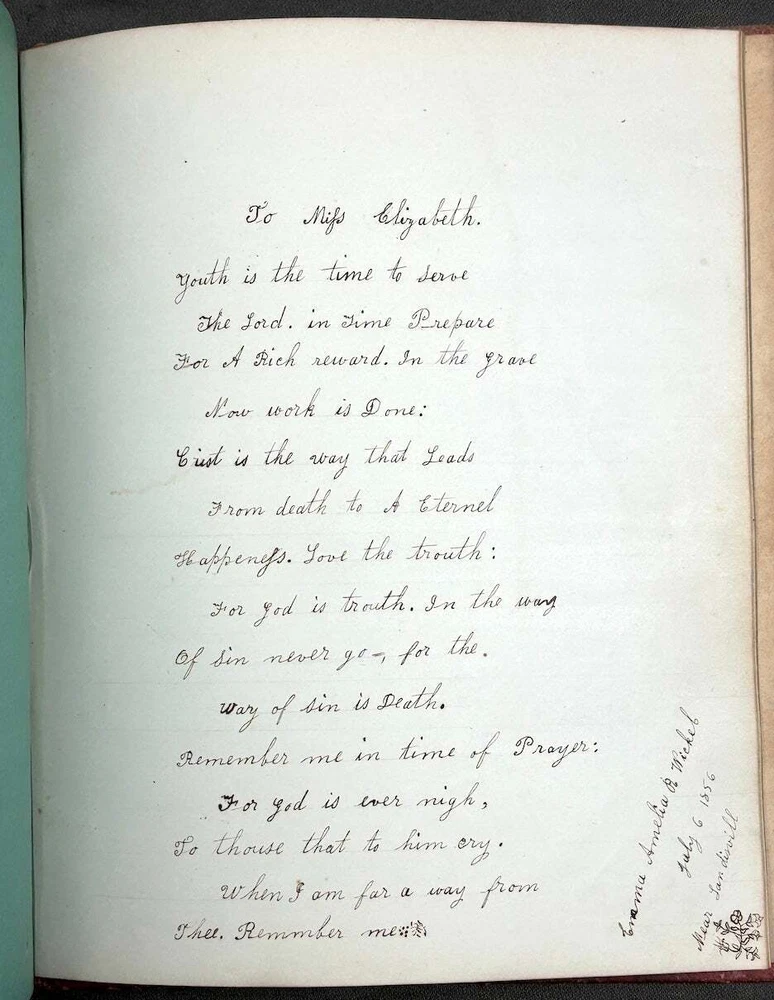 To Miss Elizabeth.
Youth is the time to Serve
The Lord. in Time Prepare
For A Rich reward. In the grave
Now work is Done:
Crist is the way that Leads
From death to A Eternel
Happeness. Love the trouth:
For God is trouth. In the way
Of Sin never go-, for the.
Way of Sin is Death.
Remember me in time of Prayer:
For God is ever nigh,
To thouse that to him cry.
When I am far a way from
Thee. Remmber me
Emma Amelia R Wickel
July 6 1856
Near Landisvill